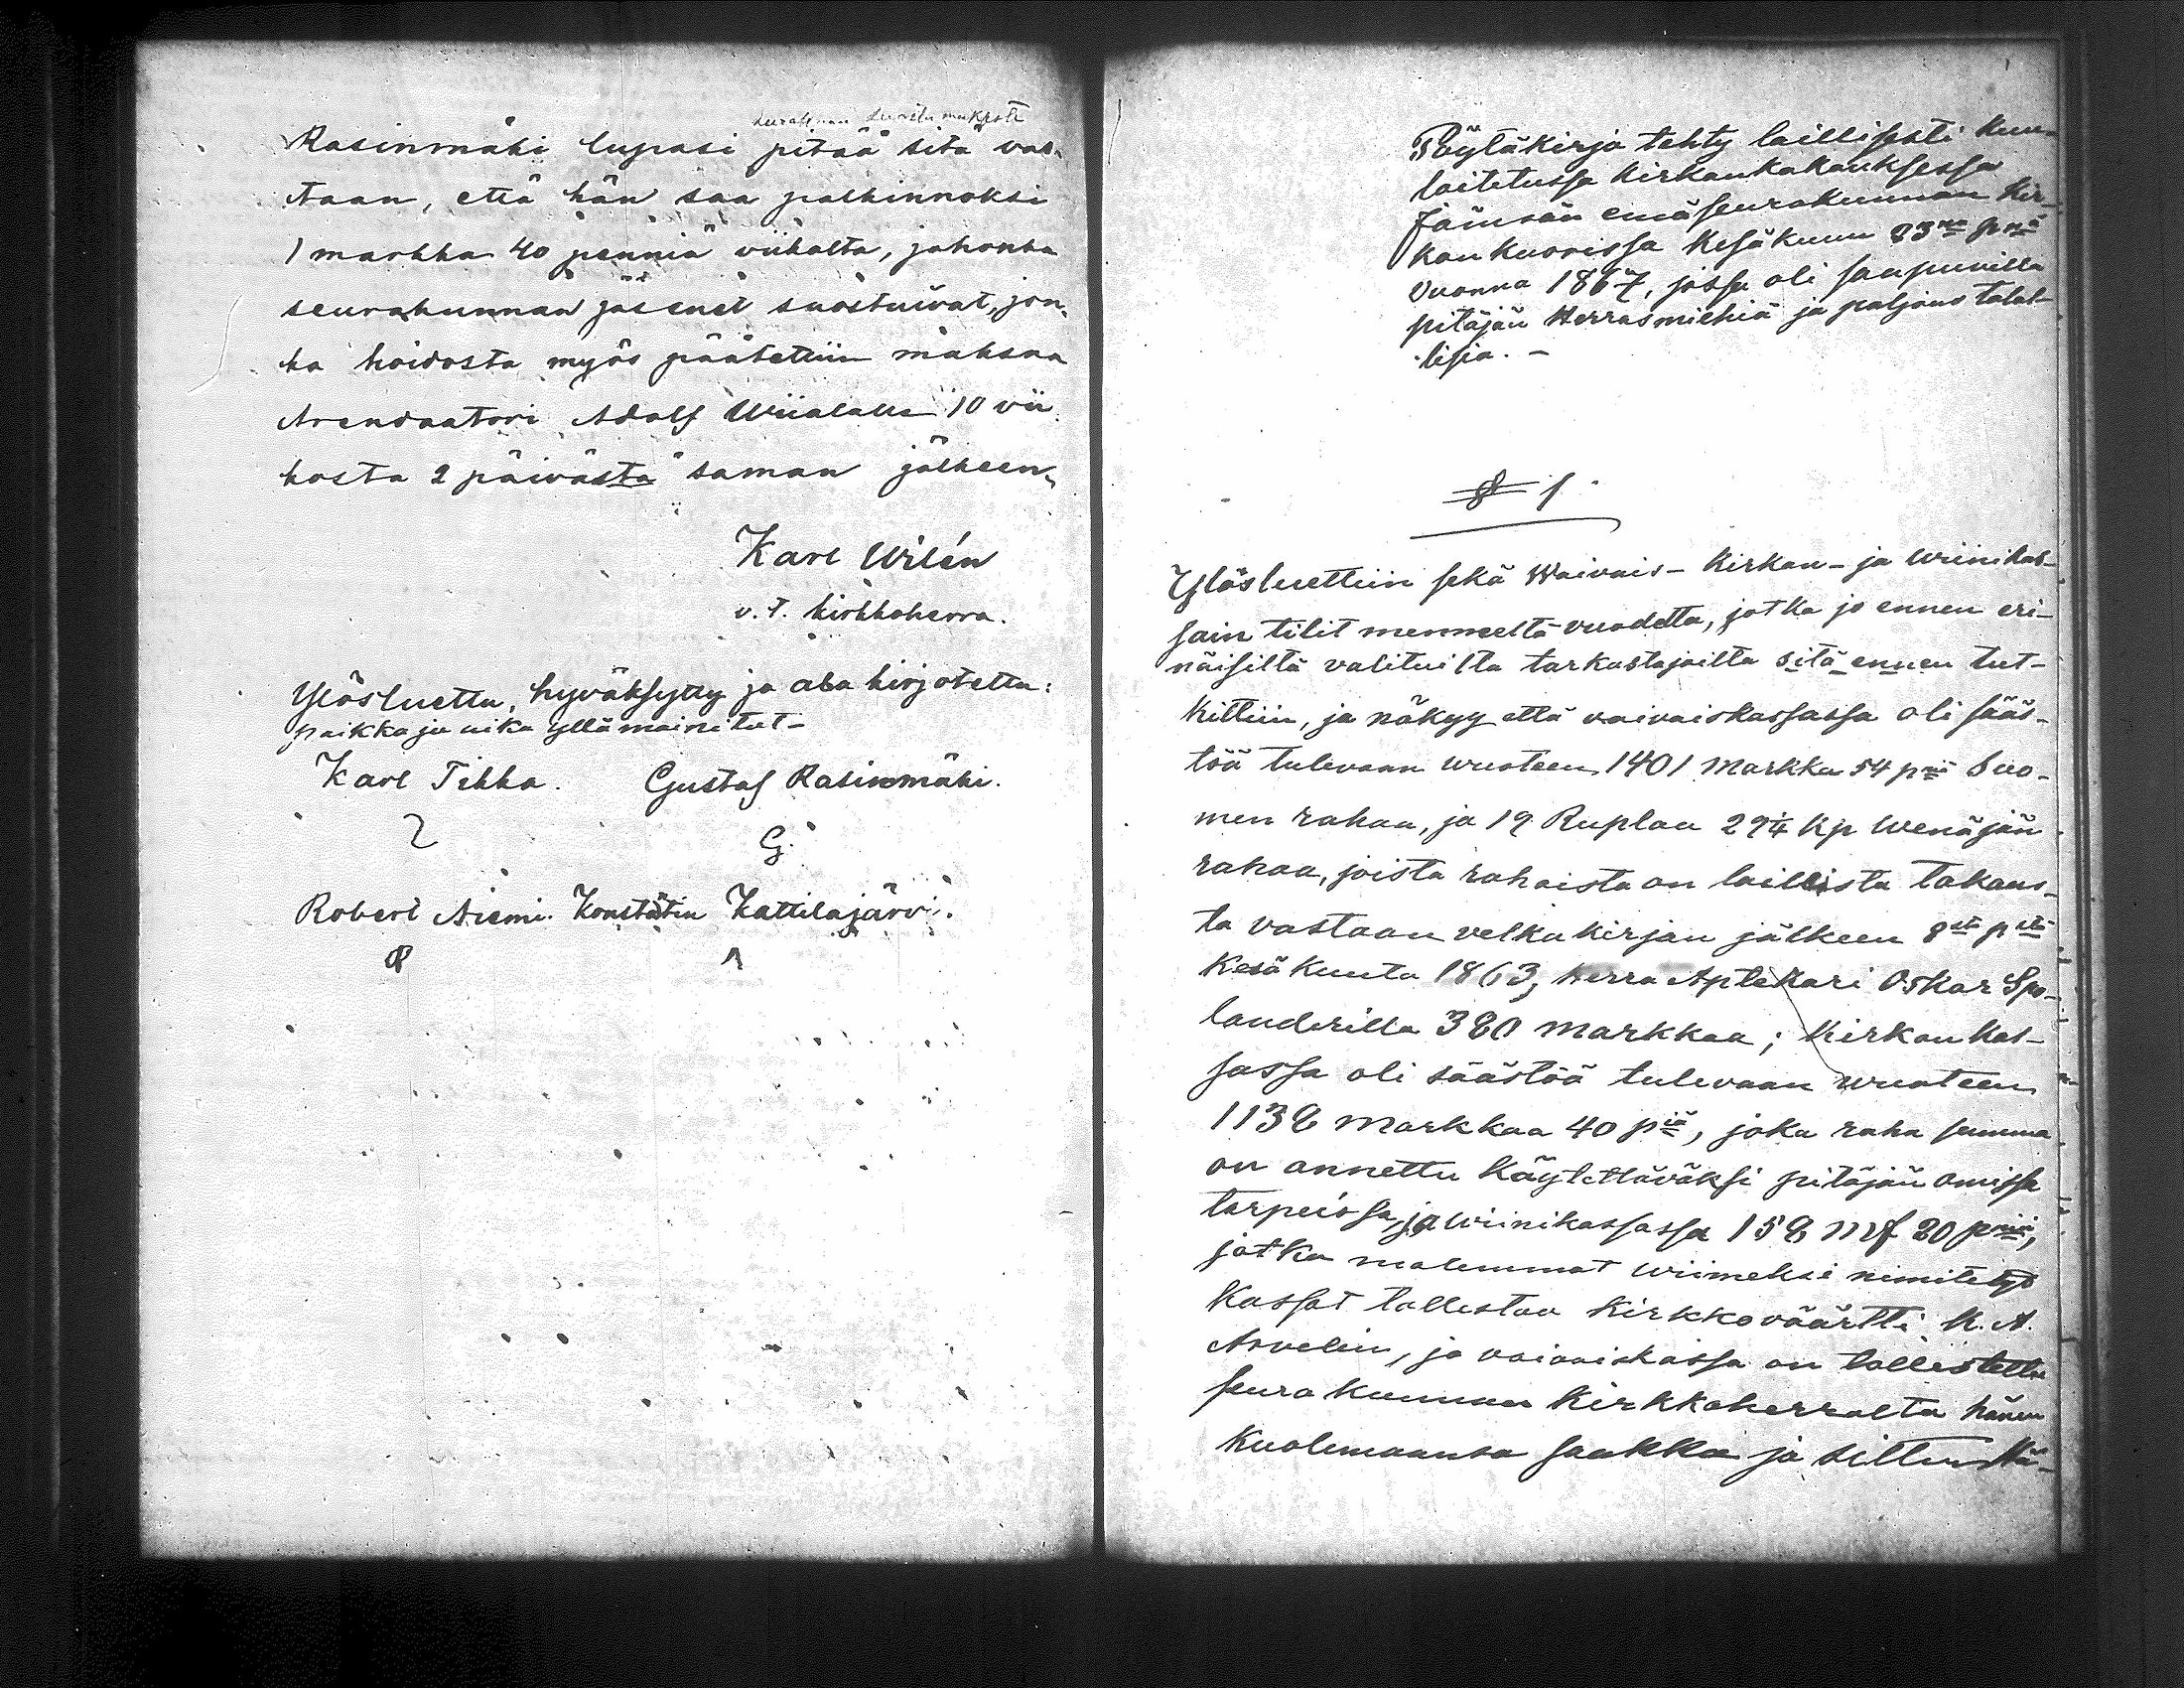 Rasinmäki lupasi pitää sitä vas-
taan, että hän saa palkinnoksi
1 markka 40 penniä viikolta, johonka
seurakunnan jäsenet suostuivat, jon-
ka hoidosta myös päätettiin maksaa
Arendaatori Adolf Wiialalle 10 vii
kosta 2 päivästä saman jälkeen
Karl Wilén
v. t. kirkkoherra.
Ylösluettu, hyväksytty ja alakirjotettu:
paikka ja aika yllämainitut-
Karl Tikka. Gustaf Rasinmäki.
Robert Niemi. Konstätin Kattilajärvi.
Pöytäkirja tehty laillisesti kuu-
loitetussa kirkonkokouksessa
Jämsän emäseurakunnan kir-
kon kuorissa Kesäkuun 23na pnä
vuonna 1867, jossa oli saapuvilla
pitäjän Herrasmiehiä ja paljous talol-
lisia. -
§ 1
Ylösluettiin sekä Waivais- Kirkon- ja Wiinikas-
sain tilit menneeltä vuodelta, jotka jo ennen eri-
näisiltä valituilta tarkastajoilta sitä ennen tut-
kittiin, ja näkyy että vaivaiskassassa oli sääs-
töä tulevaan wuoteen 1401 Markka 54 piä Suo-
men rahaa, ja 19 Ruplaa 29¼ kp Wenäjän
rahaa, joista rahoista on laillista takaus-
ta vastaan velkakirjan jälkeen 8sta pstä
Kesäkuuta 1863, Herra Aptekari Oskar Spo-
landerilla 320 markkaa; Kirkon kas-
sassa oli säästöä tulevaan wuoteen
1132 Markkaa 40 piä, joka raha summa
on annettu käytettäväksi pitäjän omissa
tarpeissa, ja wiinikassassa 152 mf 20 pniä,
jotka molemmat wiimeksi nimitetyt
kassat tallestaa kirkkoväärtti K. A.
Arvelin, ja vaivaiskassa on tallistettu
seurakunnan kirkkoherralta hänen
kuolemaansa saakka ja sitten